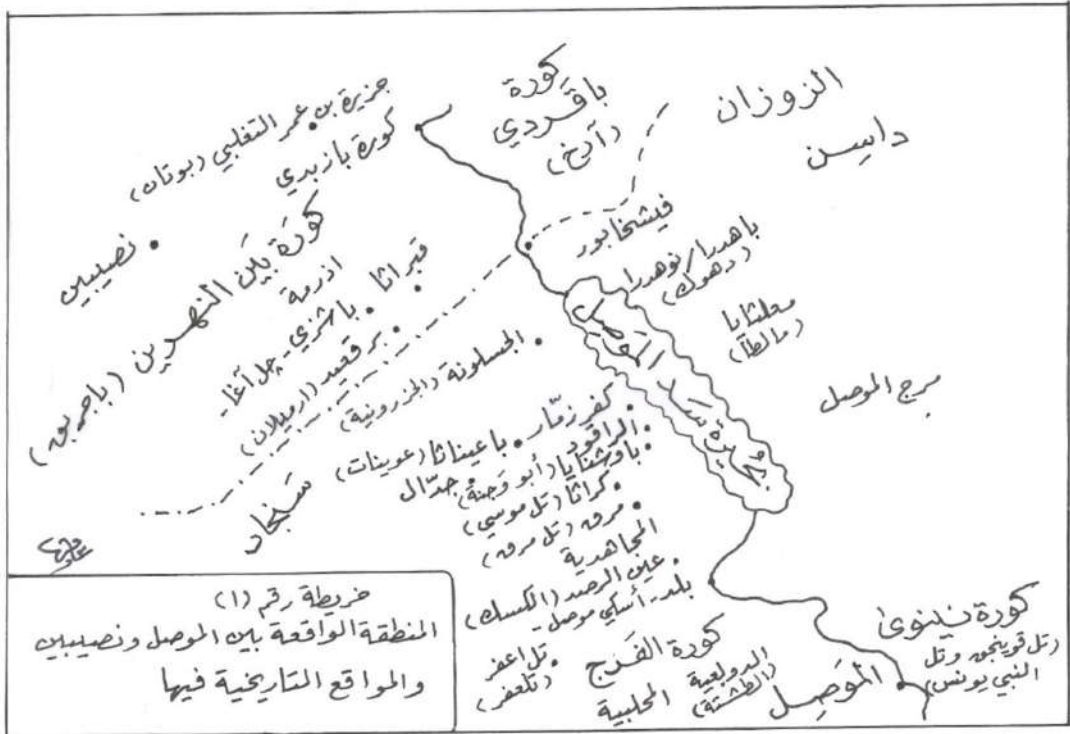 الزوزان
داسن
كورة
باقردي
(آزخ)
جزيرة بن عمر التغلبي (بوتان)
كورة بازبدي
نصيبين
كورة بين النهرين (باجربق)
اذرمة
قبراثا
باشزي - چل آغا -
برقعيد (ارميلان)
الجسلونة (الجزرونية)
فيشخابور
باهدرا/نوهدرا
(دهوك)
معلثايا
(مالطا)
مرج الموصل
بحيرة سد الموصل
سنجار
كفر زمّار
باعيناثا (عوينات)
الراقود
باوشنايا (أبو وجنة)
جدّال
كراثا (تل موسى)
مرق (تل مرق)
المجاهدية
عين الرصد (الكسك)
بلد - أسكي موصل -
كورة الفرج
تل اعفر
(تلعفر)
الدولعية
(الطشتة)
المحلبية
الموصل
كورة نينوى
(تل قوينجق وتل
النبي يونس)
خريطة رقم (١)
المنطقة الواقعة بين الموصل ونصيبين
والمواقع التاريخية فيها